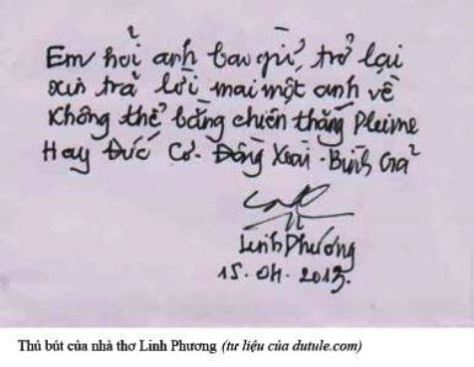 Em hỏi anh bao giờ, trở lại
xin trả lời mai một anh về
Không thể bằng chiến thắng Pleime
Hay Đức Cơ. Đồng Xoài - Bình Giả
Linh Phương
15.04.2013.
Thủ bút của nhà thơ Linh Phương (tư liệu của dutule.com)